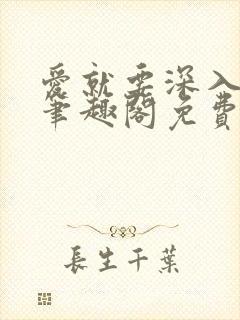 愛就要深入
筆趣閣免費
長生千葉